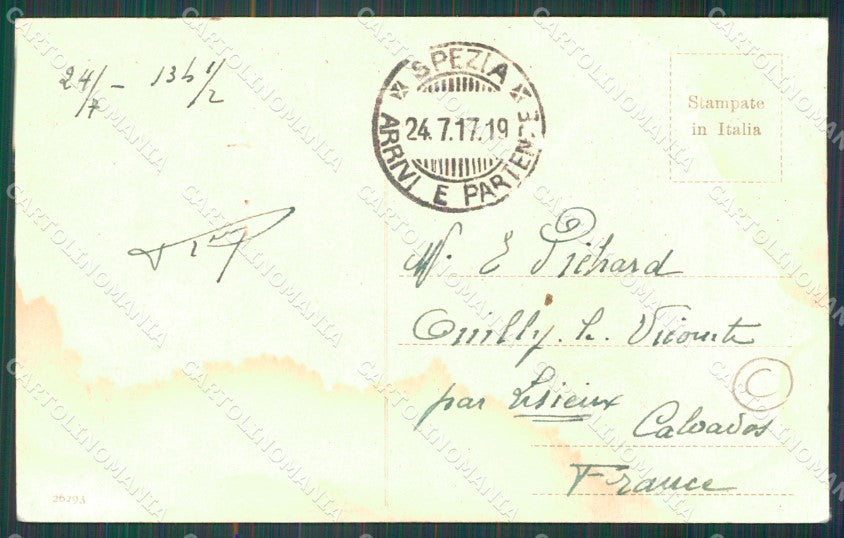 24/7 - 13h 1/2
SPEZIA
24.7.17.19
ARRIVI E PARTENZE
Stampate
in Italia
M. E Pichard
Ouilly. le. Vicomte
par Lisieux
Calvados
France
C
26293
CARTOLINOMANIA